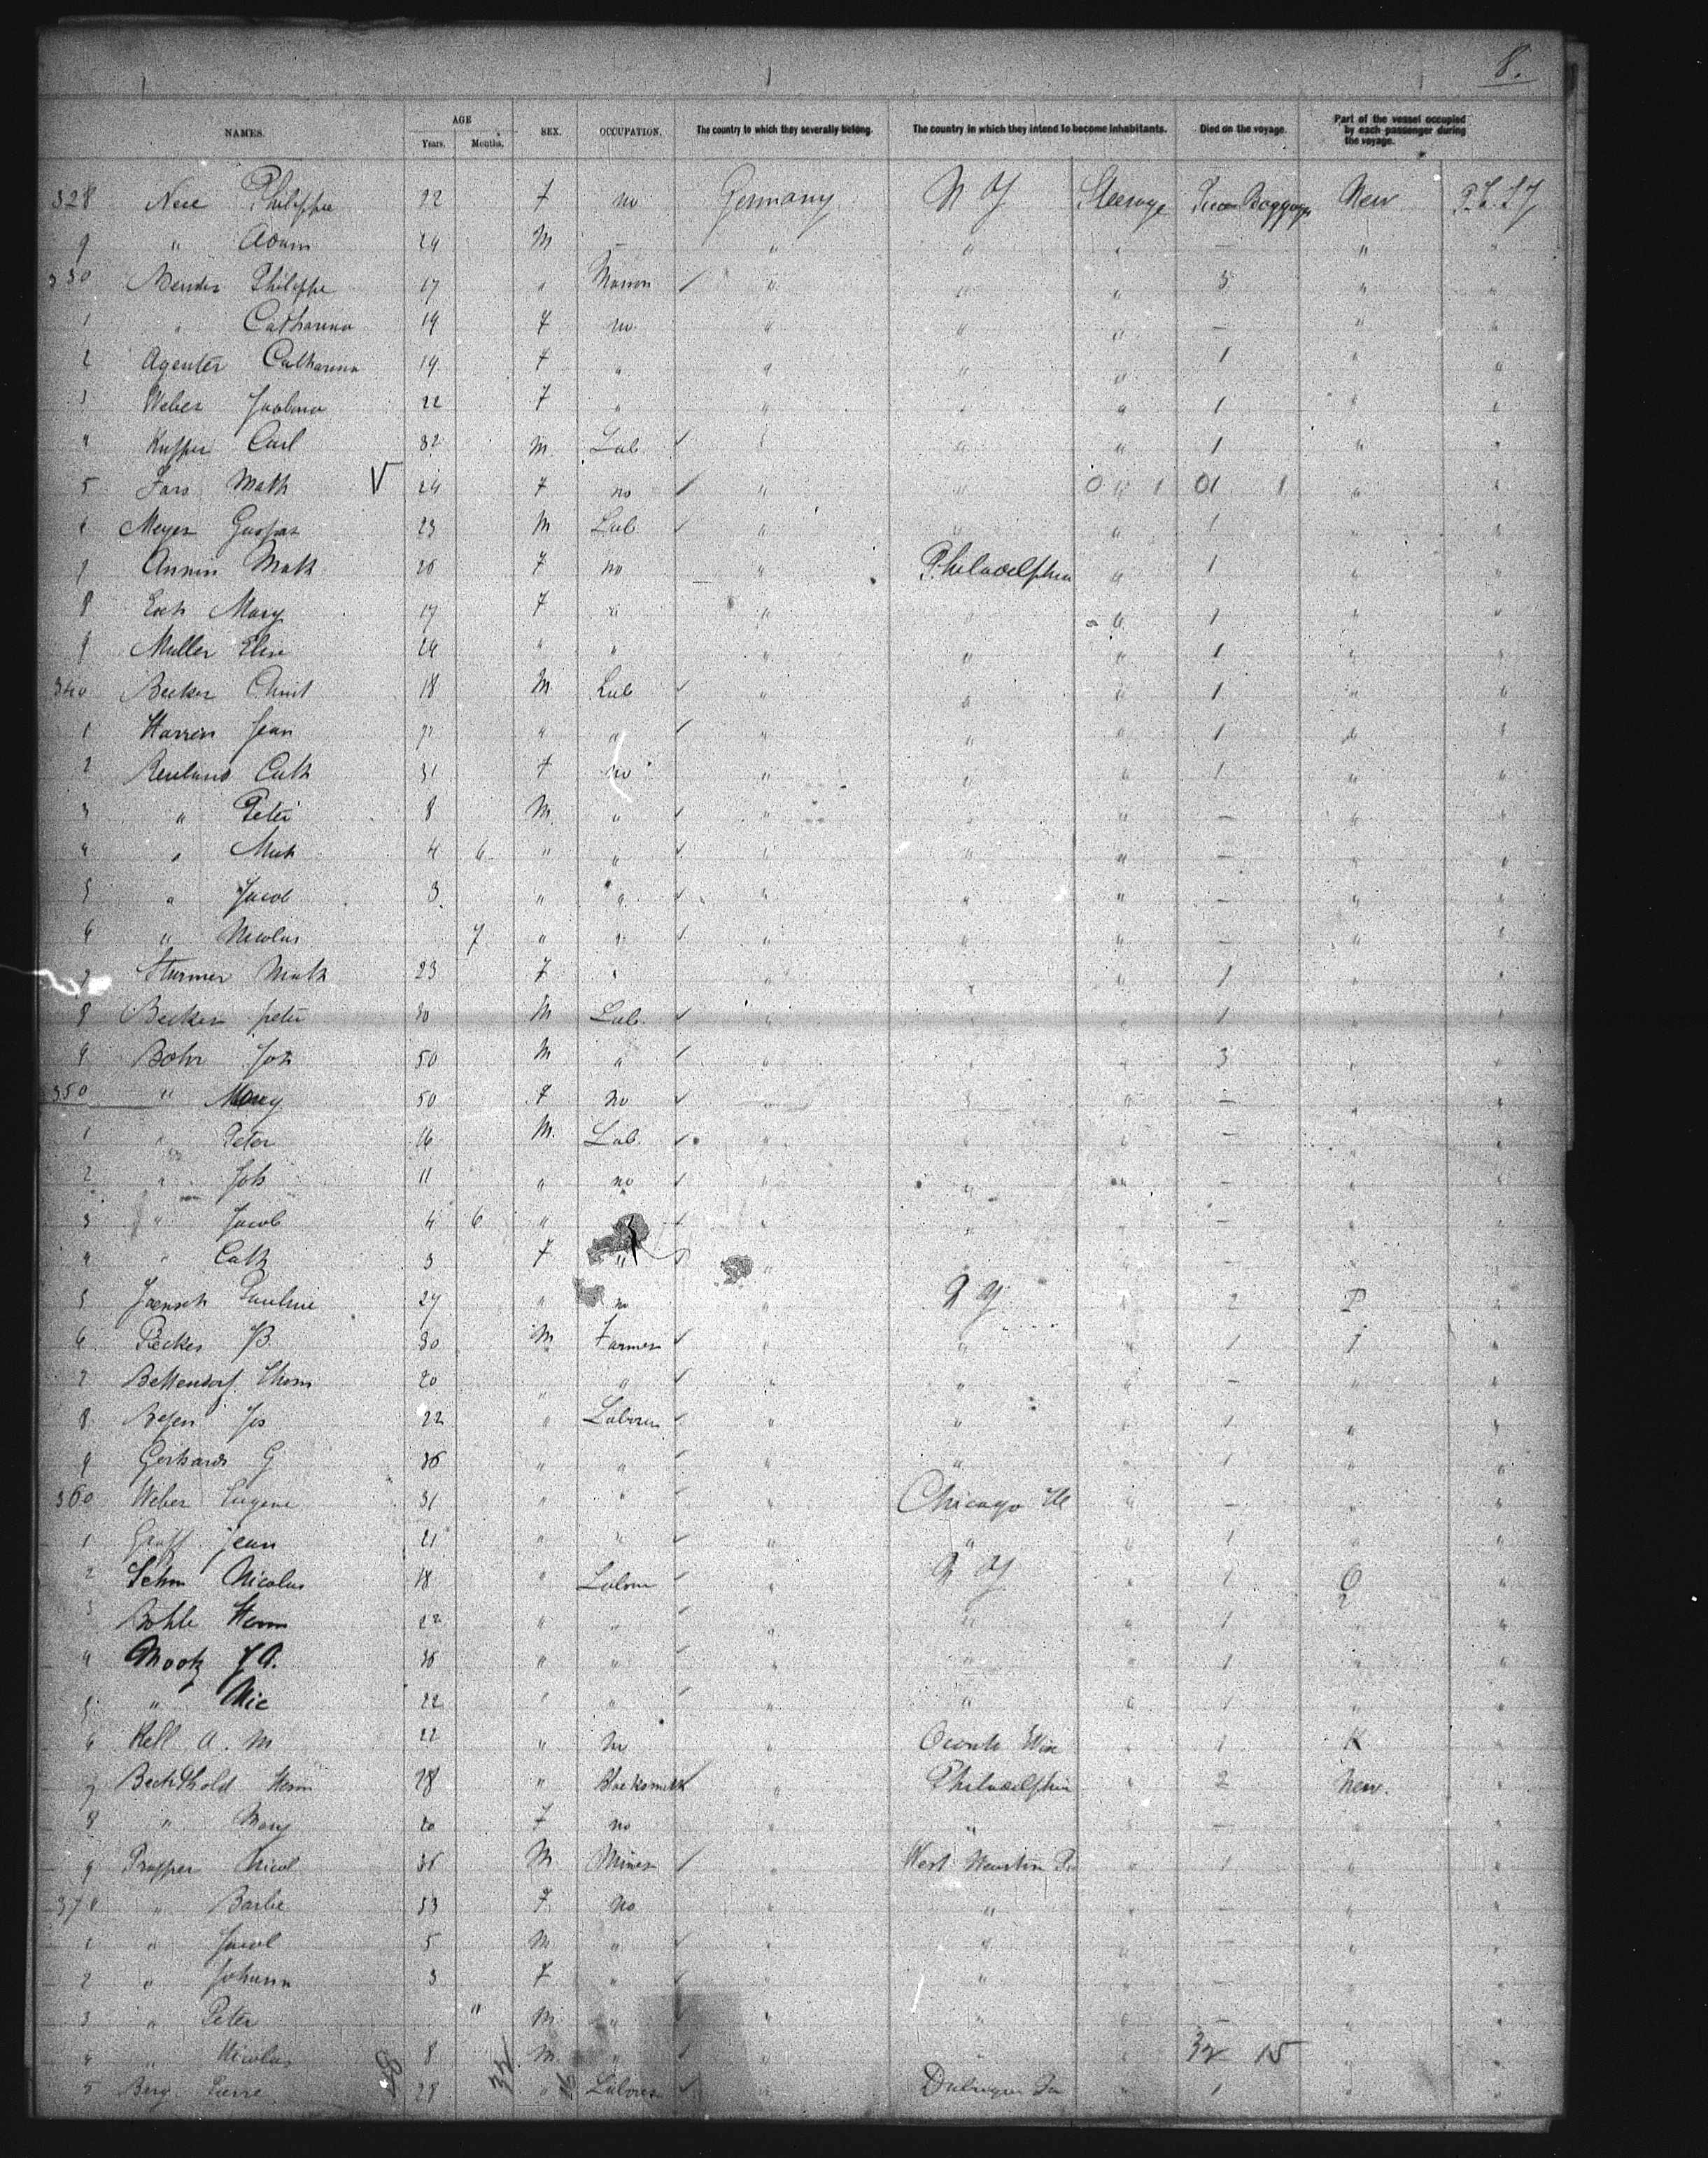 8.
NAMES. AGE Years. Months. SEX. OCCUPATION. The country to which they severally belong. The country in which they intend to become inhabitants. Died on the voyage. Part of the vessel occupied by each passenger during the voyage.
328 Philippe 22 F no Germany N Y Steerage Baggage New
9 " Adam 24 M " " " — " "
330 Philippe 17 " Mason " " " 3 " "
1 " Catharina 19 F no " " " — " "
2 Agenter Catharina 19 F " " " " 1 " "
3 Weber 22 F " " " " 1 " "
4 Carl 32 M Lab " " " 1 " "
5 Math 24 F no " " 0 " 1 01 1 " "
6 Meyer Gaspar 23 M Lab " " " 1 " "
7 Math 26 F no " Philadelphia " 1 " "
8 Mary 17 F " " " " 1 " "
9 Muller Elise 24 " " " " " 1 " "
340 Becker 18 M Lab " " " 1 " "
1 Jean " " " " " 1 " "
2 Reuland Cath 31 F no " " " 1 " "
3 " Peter 8 M " " " " — " "
4 " 4 6 " " " " " — " "
5 " Jacob 3 " " " " " — " "
6 " Nicolas 7 " " " " " — " "
7 Sturmer Math 23 F " " " " 1 " "
8 Becker peter 30 M Lab " " " 1 " "
9 Bohr Joh 50 M " " " " 3 " "
350 " Mary 50 F no " " " — " "
1 " Peter 16 M. Lab. " " " — " "
2 " Joh 11 " no " " " — " "
3 " Jacob 4 6 " " " " " — " "
4 " Cath 3 F " " " " — " "
5 Jaensch Pauline 27 " no " N Y " 2 P "
6 Becker 30 M Farmer " " " 1 1 "
7 Bettendorf Thom 20 " " " " " — " "
8 Jos 22 " Laborer " " " 1 " "
9 Gerhards G 36 " " " " " 1 " "
360 Weber Eugene 31 " " " Chicago Ill " — " "
1 Graff jean 21 " " " " " 1 " "
2 Nicolas 18 " Laborer " N Y " 1 "
3 Bohle Herm 22 " " " " " 1 " "
4 Mootz J A. 36 " " " " " 1 " "
5 " Nic 22 " " " " " 1 " "
6 Kell A. M 22 " no " Oconto Wis " 1 K "
7 Bechthold Herm 28 " Blacksmith " Philadelphia " 2 New. "
8 " Mary 20 F no " " " — " "
9 Nicol 36 M Miner " West Newton Pa " 1 " "
370 " Barbe 33 F no " " " — " "
1 " Jacob 5 M " " " " — " "
2 " Johann 3 F " " " " — " "
3 " Peter " M " " " " — " "
4 " Nicolas 8 M " " " " 32 15 " "
5 Berg Pierre 28 " Laborer " " 1 " "